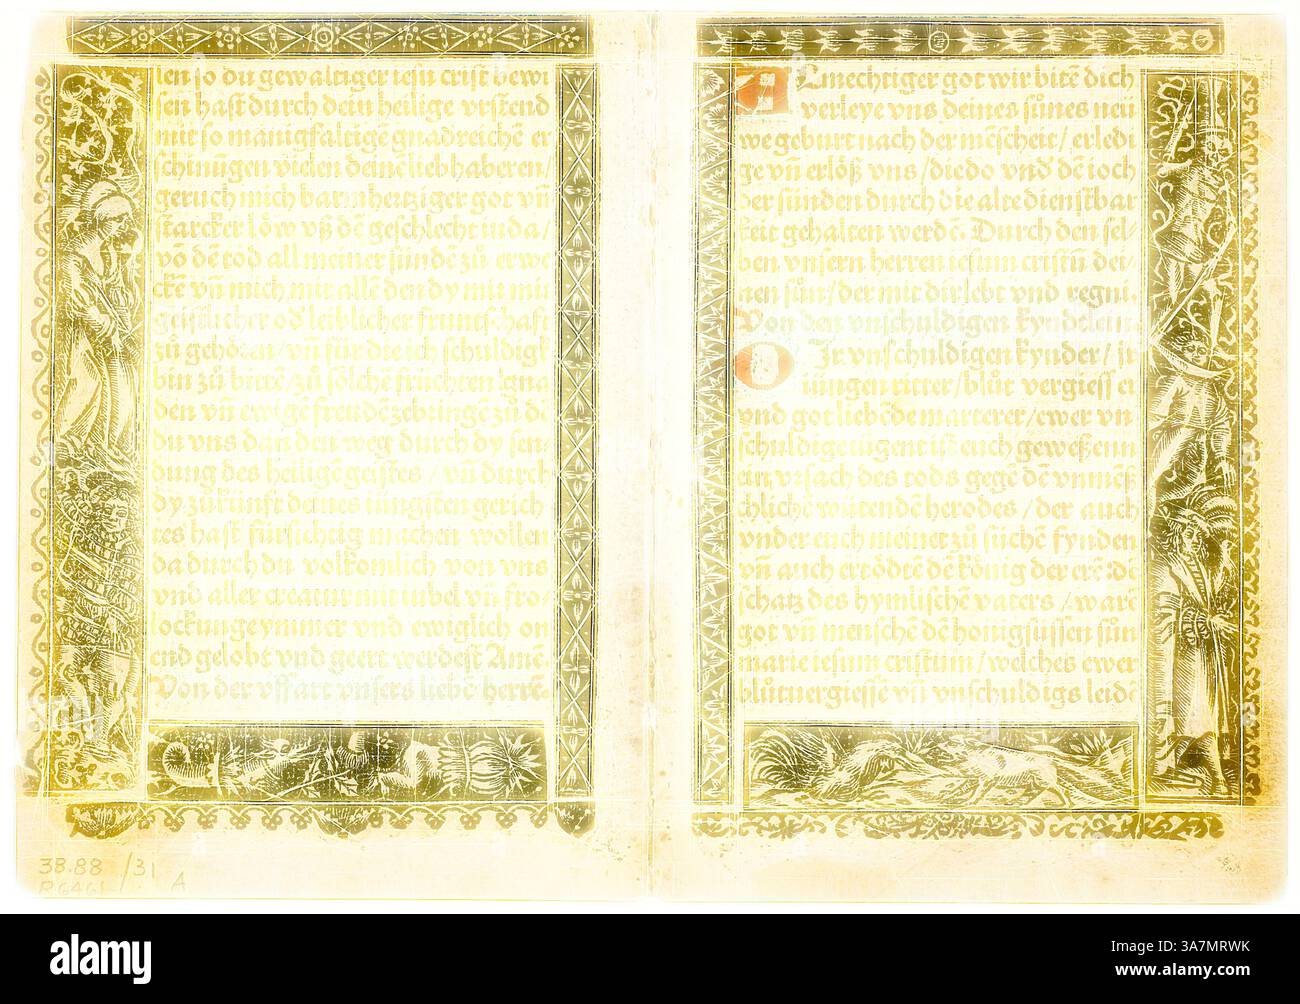 len so du gewaltiger iesu crist bewi
sen hast durch dein heilige vrstend
mit so manigfaltigē gnadreichē er
schinūgen vielen deinē liebhaberen/
geruch mich barmhertziger got vn̄
starcker löw vß dē geschlecht iuda/
vō dē tod all meiner sündē zů erwe
ckē vn̄ mich mit allē den dy mit mir
geistlicher od leiblicher fruntschaft
zů gehören/vn̄ für die ich schuldig
bin zů bittē/zů sölchē früchten gna
den vn̄ ewigē freudē zebringē zů dē
du vns dan den weg durch dy sen-
dung des heiligē geistes/vn̄ durch
dy zůkünft deines iüngsten gerich
tes hast fürsichtig machen wollen
da durch du volkomlich von vns
vnd aller creatur mit iubel vn̄ fro/
lockung eymmer vnd ewiglich on
end gelobt vnd geert werdest Amē
Von der vffart vnsers liebē herrē
38.88 /31
A
ALmechtiger got wir bitē dich
verleye vns deines sůnes neü
we geburt nach der mēscheit/erledi
ge vn̄ erlöß vns/die do vnd dē ioch
der sünden durch die alte dienstbar
keit gehalten werdē. Durch den sel-
ben vnsern herren iesum cristū dei-
nen sůn/der mit dir lebt vnd regni.
Von den vnschuldigen kyndlein.
O Ir vnschuldigen kynder/ir
iüngen ritter/blůt vergiesser
vnd got liebēde marterer/ewer vn
schuldige iugent ist euch geweßenn
ein vrsach des tods gegē dē vnmēs
chlichē wütendē herodes/der auch
vnder euch meinet zů süchē kynden
vn̄ auch ertödtē dē kōnig der erē:dē
schatz des hymlischē vaters/warē
got vn̄ menschē dē honigsüssen sůn
marie iesum cristum/welches ewer
blůtuergiessē vn̄ vnschuldigs leidē
alamy
Image ID: 3A7MRWK
www.alamy.com